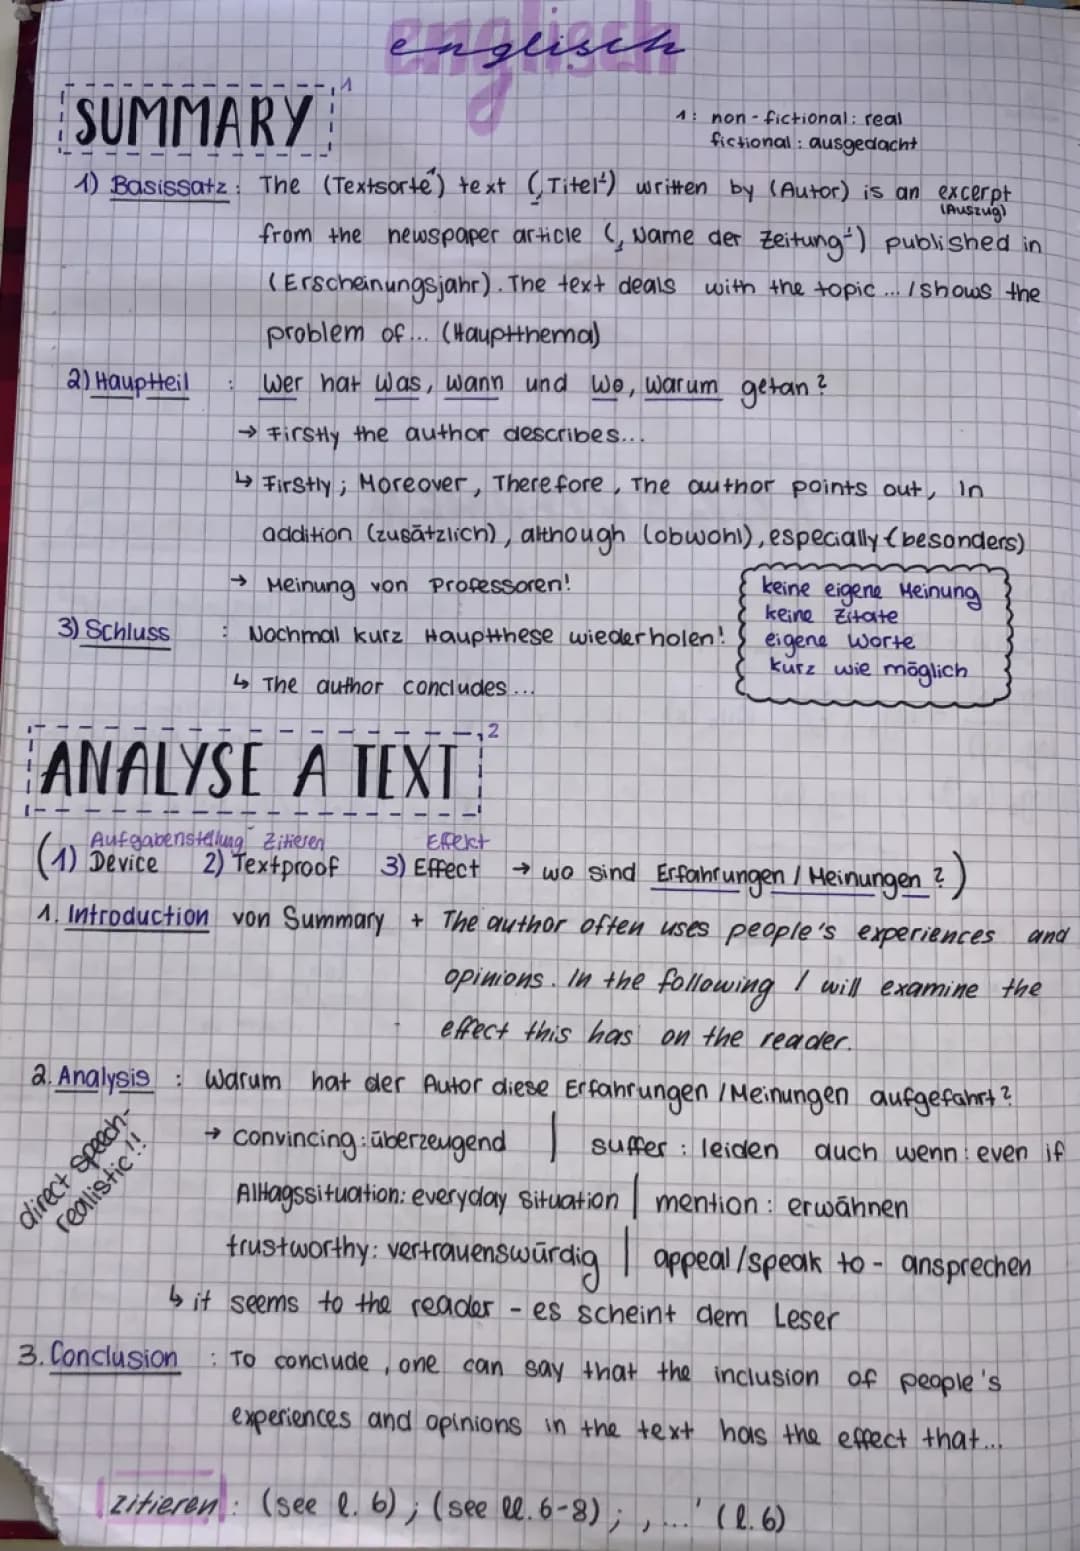 englisch
SUMMARY 1
1: non-fictional: real
fictional: ausgedacht
1) Basissatz: The (Textsorte) text (‚Titel') written by (Autor) is an excerpt
(Auszug)
from the newspaper article (‚Name der Zeitung') published in
(Erscheinungsjahr). The text deals with the topic ... / shows the
problem of ... (Hauptthema)
2) Hauptteil : Wer hat Was, Wann und Wo, Warum getan?
→ Firstly the author describes...
↳ Firstly; Moreover, Therefore, The author points out, In
addition (zusätzlich), although (obwohl), especially (besonders)
→ Meinung von Professoren!
3) Schluss : Nochmal kurz Haupthese wiederholen!
↳ The author concludes...
keine eigene Meinung
keine Zitate
eigene Worte
kurz wie möglich
ANALYSE A TEXT 2
Aufgabenstellung Zitieren Effekt
(1) Device 2) Textproof 3) Effect → wo sind Erfahrungen / Meinungen?)
1. Introduction von Summary + The author often uses people's experiences and
opinions. In the following I will examine the
effect this has on the reader.
2. Analysis : Warum hat der Autor diese Erfahrungen / Meinungen aufgefahrt?
direct speech-
realistic!!
→ convincing: überzeugend | suffer: leiden auch wenn: even if
Alltagssituation: everyday situation | mention: erwähnen
trustworthy: vertrauenswürdig | appeal/speak to - ansprechen
↳ it seems to the reader - es scheint dem Leser
3. Conclusion : To conclude, one can say that the inclusion of people's
experiences and opinions in the text has the effect that...
zitieren: (see l. 6); (see ll. 6-8); ‚...' (l. 6)